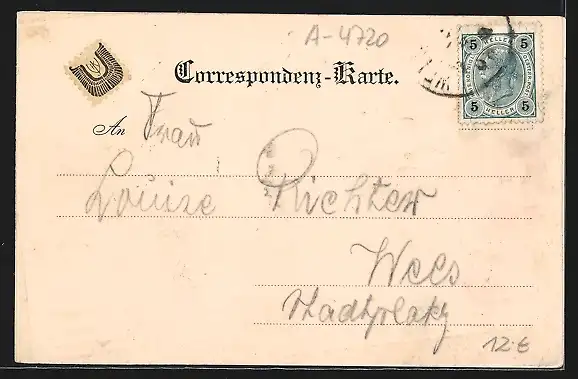 A-4720
5 HELLER 5
5 HELLER 5
Correspondenz-Karte.
An Frau
Louise Richter
Wels
Stadtplatz
12.€